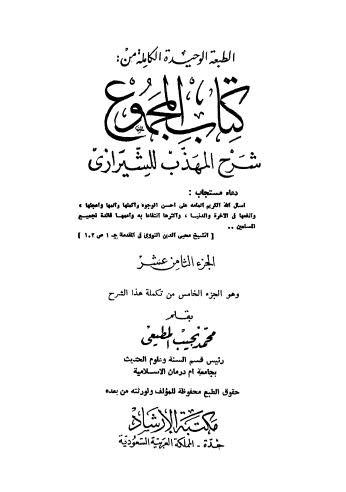 الطبعة الوحيدة الكاملة من :
كتاب المجموع
شرح المهذب للشيرازي
دعاء مستجاب :
اسال الله الكريم اتمامه على احسن الوجوه واكملها واتمها واعجلها ،
وانفعها في الآخرة والدنيا ، واكثرها انتفاعا به واعمها فائدة لجميع
المسلمين ..
[ الشيخ محيى الدين النووى في المقدمة جـ ١ ص ١٠٢ ]
الجزء الثامن عشر
وهو الجزء الخامس من تكملة هذا الشرح
بقلم
محمد نجيب المطيعي
رئيس قسم السنة وعلوم الحديث
بجامعة ام درمان الاسلامية
حقوق الطبع محفوظة للمؤلف ولورثته من بعده
مكتبة الإرشاد
جدة - المملكة العربية السعودية